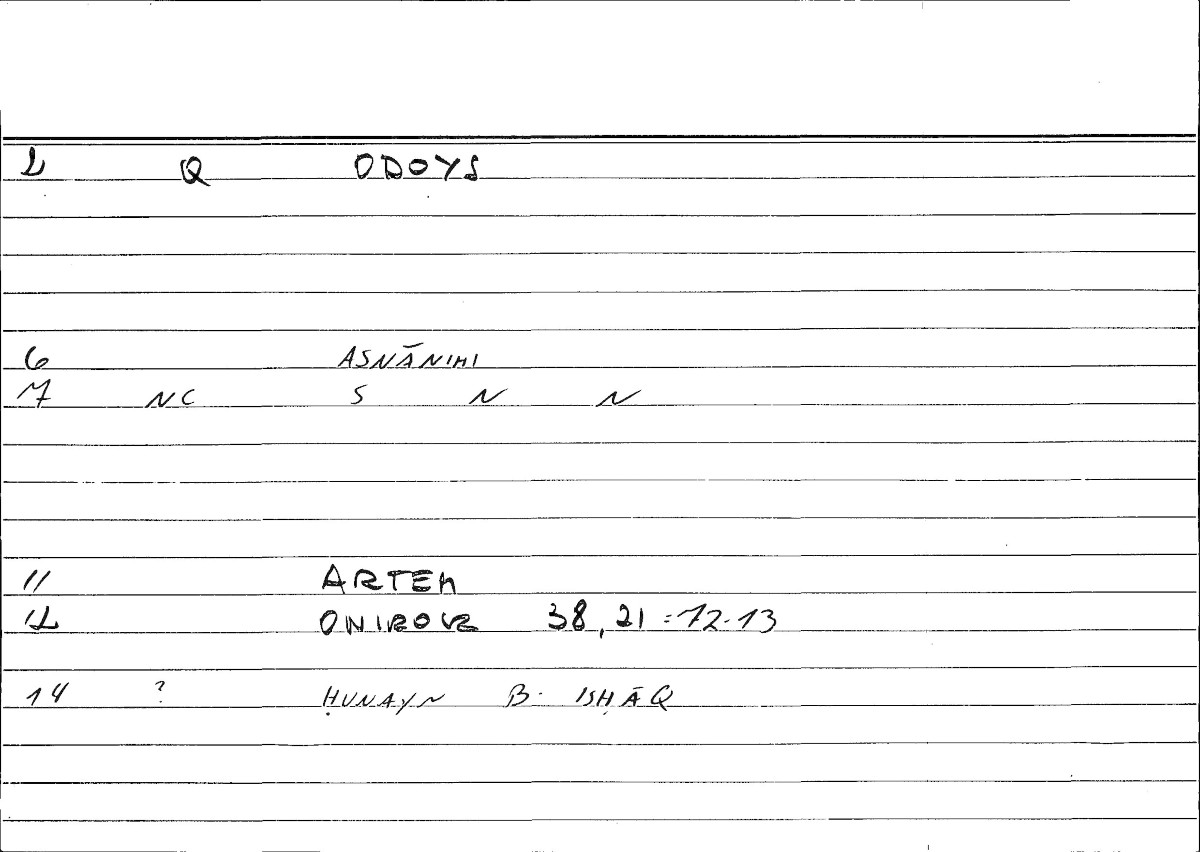 2 Q ODOYS
6 ASNĀNIHI
7 NC S N N
11 ARTEM
12 ONIROCR 38,21 = 12-13
14 ? ḤUNAYN B. ISḤĀQ